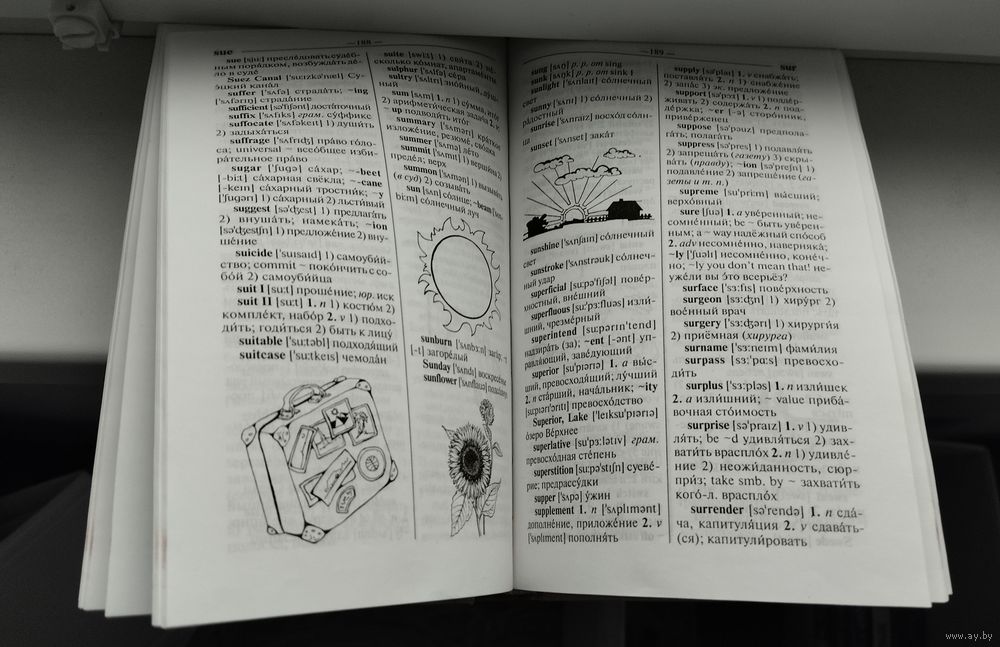 —188—
sue
sue [sju:] преслéдовать судéб-
ным поря́дком, возбуждáть дé-
ло в судé
Suez Canal ['suɪzkə'næl] Су-
э́цкий канáл
suffer ['sʌfə] страдáть; ~ing
['sʌfərɪŋ] страдáние
sufficient [sə'fɪʃənt] достáточный
suffix ['sʌfɪks] грам. сýффикс
suffocate ['sʌfəkeɪt] 1) души́ть
2) задыхáться
suffrage ['sʌfrɪdʒ] прáво гóло-
са; universal ~ всеóбщее изби-
рáтельное прáво
sugar ['ʃugə] сáхар; ~-beet
[-bi:t] сáхарная свёкла; ~-cane
[-keɪn] сáхарный тростни́к; ~y
['ʃugərɪ] 1) сáхарный 2) льсти́вый
suggest [sə'dʒest] 1) предлагáть
2) внушáть, намекáть; ~ion
[sə'dʒestʃn] 1) предложéние 2) вну-
шéние
suicide ['suɪsaɪd] 1) самоуби́й-
ство; commit ~ покóнчить с со-
бóй 2) самоуби́йца
suit I [su:t] прошéние; юр. иск
suit II [su:t] 1. n 1) костю́м 2)
комплéкт, набóр 2. v 1) подхо-
ди́ть; годи́ться 2) быть к лицý
suitable ['su:təbl] подходя́щий
suitcase ['su:tkeɪs] чемодáн
suite [swi:t] 1) сви́та 2) нé-
сколько кóмнат, апартамéнты
sulphur ['sʌlfə] сéра
sultry ['sʌltrɪ] знóйный, дýш-
ный
sum [sʌm] 1. n 1) сýмма, итóг
2) арифмети́ческая задáча 2. v
~ up подводи́ть итóг
summary ['sʌmərɪ] крáткое
изложéние, резюмé, свóдка
summer ['sʌmə] лéто
summit ['sʌmɪt] 1) верши́на 2)
предéл; верх
summon ['sʌmən] 1) вызывáть
(в суд) 2) созывáть
sun [sʌn] сóлнце; ~beam ['sʌn-
bi:m] сóлнечный луч
sunburn ['sʌnbɜ:n] загáр; ~t
[-t] загорéлый
Sunday ['sʌndɪ] воскресéнье
sunflower ['sʌnflauə] подсóлнух
—189—
sur
sung [sʌŋ] p. p. om sing
sunk [sʌŋk] p. p. om sink 1
sunlight ['sʌnlaɪt] сóлнечный
свет
sunny ['sʌnɪ] 1) сóлнечный 2)
рáдостный
sunrise ['sʌnraɪz] восхóд сóлн-
ца
sunset ['sʌnset] закáт
sunshine ['sʌnʃaɪn] сóлнечный
свет
sunstroke ['sʌnstrəuk] сóлнеч-
ный удáр
superficial [su:pə'fɪʃəl] повéр-
хностный, внéшний
superfluous [su:'pɜ:fluəs] изли́-
шний, чрезмéрный
superintend [su:pərɪn'tend]
надзирáть (за); ~ent [-ənt] уп-
равля́ющий, завéдующий
superior [su'pɪərɪə] 1. a вы́с-
ший, превосходя́щий; лýчший
2. n стáрший, начáльник; ~ity
[su:pɪərɪ'ɔrɪtɪ] превосхóдство
Superior, Lake ['leɪksu'pɪərɪə]
óзеро Вéрхнее
superlative [su'pɜ:lətɪv] грам.
превосхóдная стéпень
superstition [su:pə'stɪʃn] суевé-
рие; предрассýдки
supper ['sʌpə] ýжин
supplement 1. n ['sʌplɪmənt]
дополнéние, приложéние 2. v
['sʌplɪment] пополня́ть
supply [sə'plaɪ] 1. v снабжáть;
поставля́ть 2. n 1) снабжéние
2) запáс 3) эк. предложéние
support [sə'pɔ:t] 1. v 1) поддéр-
живать 2) содержáть 2. n под-
дéржка; ~er [-ə] сторóнник,
привéрженец
suppose [sə'pəuz] предполa-
гáть; полагáть
suppress [sə'pres] 1) подавля́ть
2) запрещáть (газету) 3) скры-
вáть (правду); ~ion [sə'preʃn] 1)
подавлéние 2) запрещéние (га-
зеты и т. п.)
supreme [su'pri:m] вы́сший;
верхóвный
sure [ʃuə] 1. a увéренный; не-
сомнéнный; be ~ быть увéрен-
ным; a ~ way надёжный спóсоб
2. adv несомнéнно, наверняка́;
~ly ['ʃuəlɪ] несомнéнно, конéч-
но; ~ly you don't mean that! не-
ужéли вы э́то всерьёз?
surface ['sɜ:fɪs] повéрхность
surgeon ['sɜ:dʒn] 1) хирýрг 2)
воéнный врач
surgery ['sɜ:dʒərɪ] 1) хирурги́я
2) приёмная (хирурга)
surname ['sɜ:neɪm] фами́лия
surpass [sɜ:'pɑ:s] превосхо-
ди́ть
surplus ['sɜ:pləs] 1. n изли́шек
2. a изли́шний; ~ value прибá-
вочная стóимость
surprise [sə'praɪz] 1. v 1) удив-
ля́ть; be ~d удивля́ться 2) зах-
вати́ть врасплóх 2. n 1) удивлé-
ние 2) неожи́данность, сюр-
при́з; take smb. by ~ захвати́ть
когó-л. врасплóх
surrender [sə'rendə] 1. n сдá-
ча, капитуля́ция 2. v сдавáть-
(ся); капитули́ровать
www.ay.by